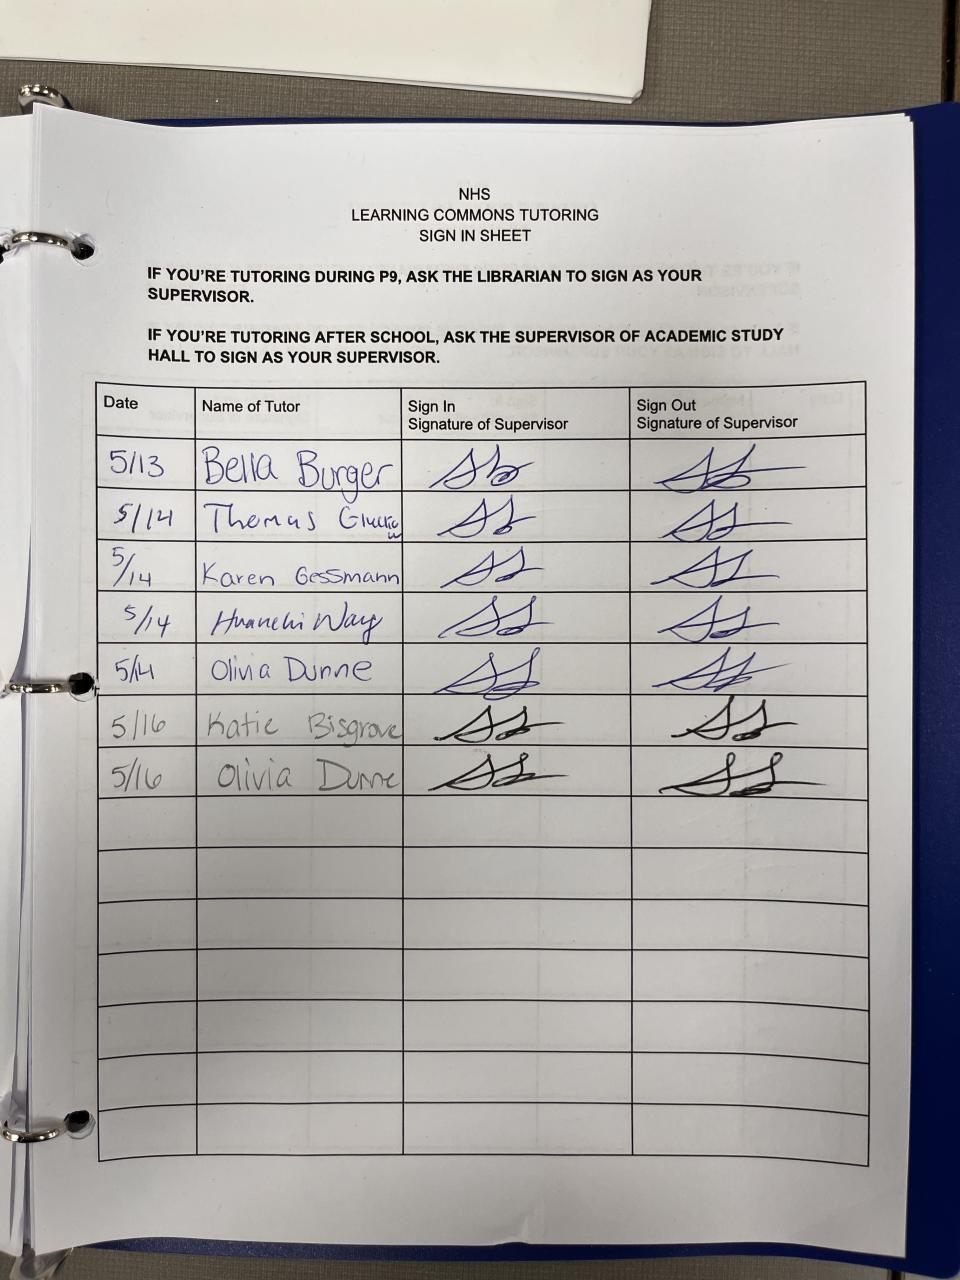 NHS
LEARNING COMMONS TUTORING
SIGN IN SHEET
IF YOU'RE TUTORING DURING P9, ASK THE LIBRARIAN TO SIGN AS YOUR
SUPERVISOR.
IF YOU'RE TUTORING AFTER SCHOOL, ASK THE SUPERVISOR OF ACADEMIC STUDY
HALL TO SIGN AS YOUR SUPERVISOR.
Date Name of Tutor Sign In Signature of Supervisor Sign Out Signature of Supervisor
5/13 Bella Burger
5/14 Thomas
5/14 Karen Gessmann
5/14
5/14 Olivia Dunne
5/16 Katie Bisgrove
5/16 Olivia Dunne